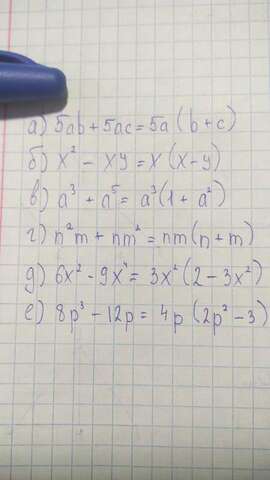 а) 5ab + 5ac = 5a (b + c)
б) x² - xy = x (x - y)
в) a³ + a⁵ = a³ (1 + a²)
г) n²m + nm² = nm (n + m)
д) 6x² - 9x⁴ = 3x² (2 - 3x²)
е) 8p³ - 12p = 4p (2p² - 3)